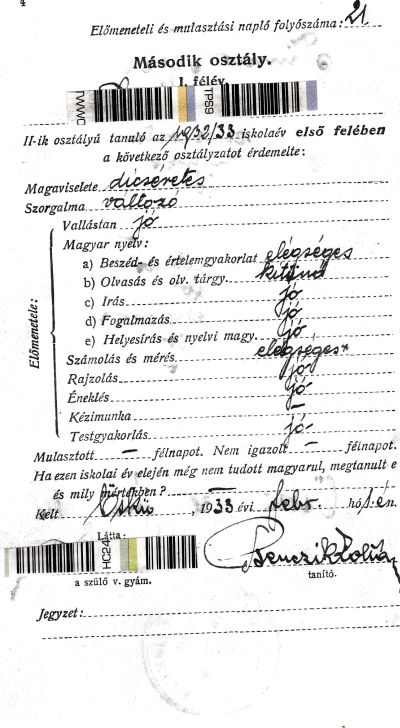 4
Előmeneteli és mulasztási napló folyószáma: 21
Második osztály.
I. félév
TPS9
II-ik osztályú tanuló az 1932/33 iskolaév első felében
a következő osztályzatot érdemelte:
Magaviselete dicséretes
Szorgalma változó
Előmenetele:
Vallástan jó
Magyar nyelv:
a) Beszéd- és értelemgyakorlat elégséges
b) Olvasás és olv. tárgy. kitünő
c) Irás jó
d) Fogalmazás jó
e) Helyesírás és nyelvi magy. jó
Számolás és mérés elégséges
Rajzolás jó
Éneklés jó
Kézimunka —
Testgyakorlás jó
Mulasztott — félnapot. Nem igazolt — félnapot.
Ha ezen iskolai év elején még nem tudott magyarul, megtanult e
és mily mértékben? —
Kelt , 1933 évi febr. hó 1-én.
Látta:
HC24
a szülő v. gyám.
tanító.
Jegyzet: